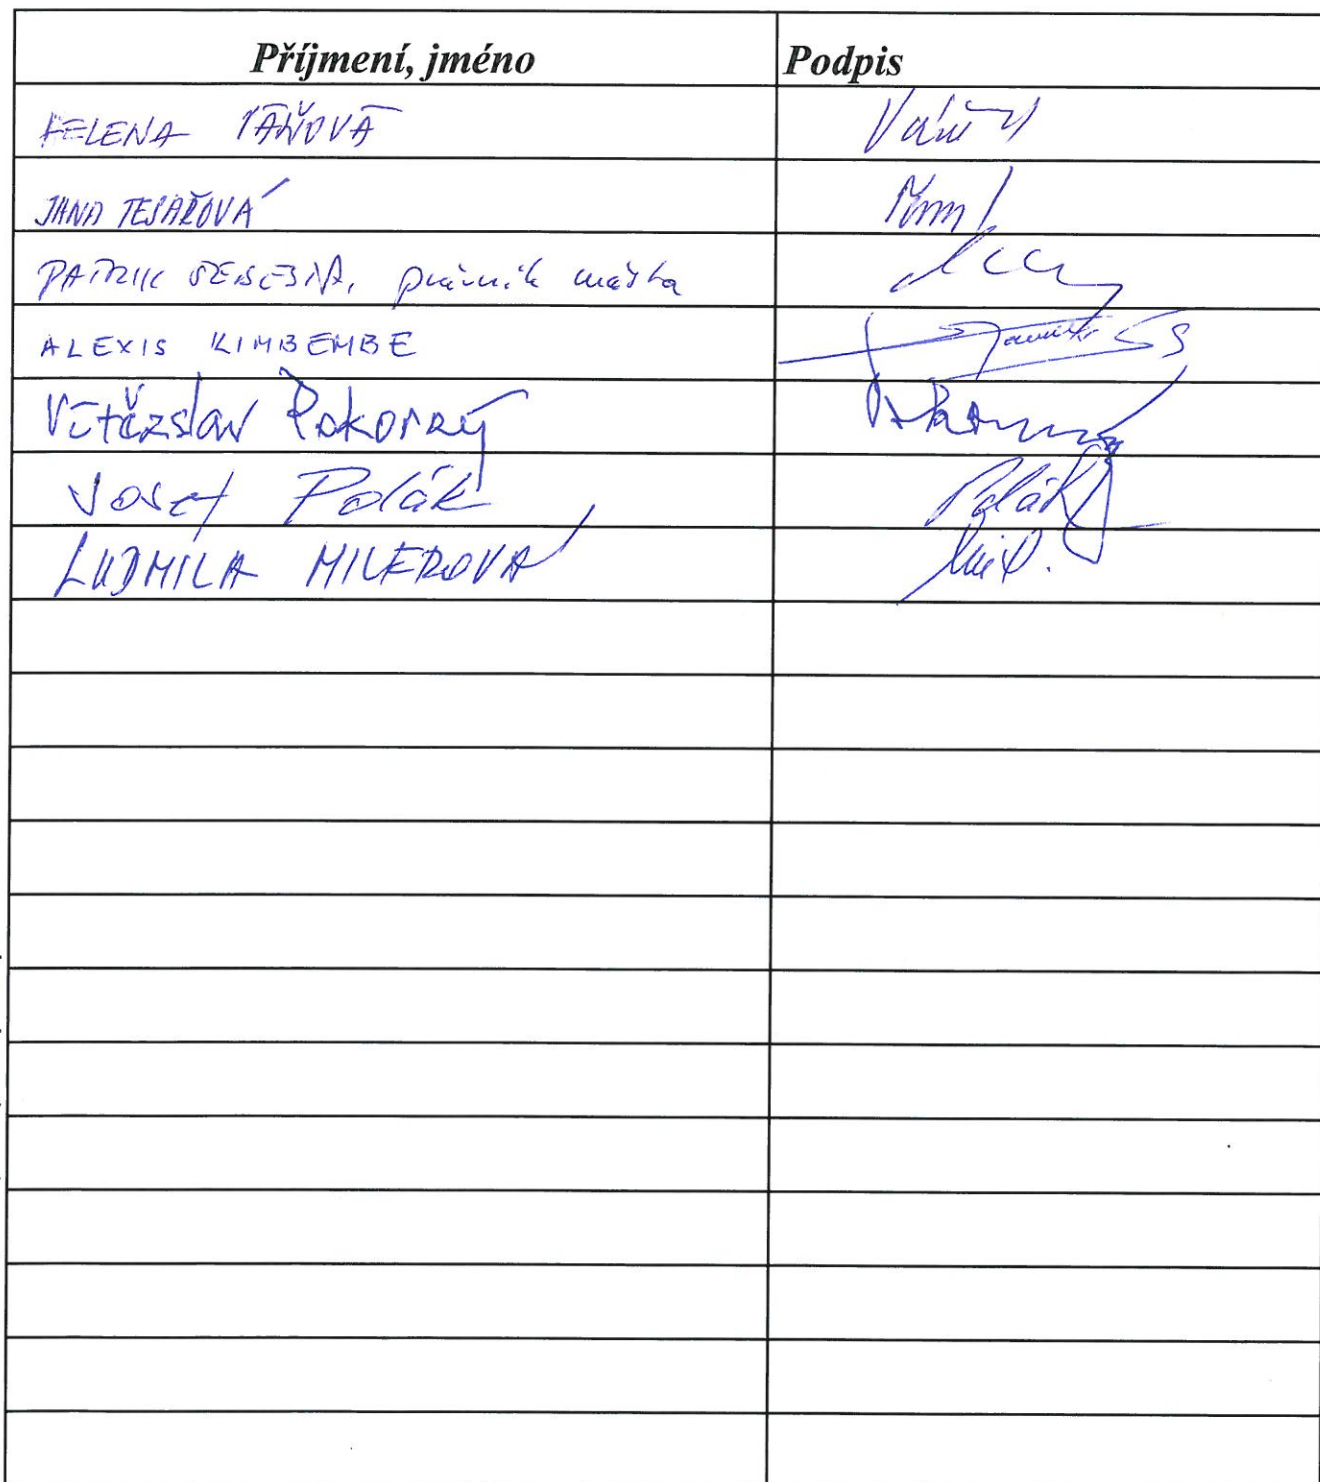 Příjmení, jméno Podpis
HELENA VÁŇOVÁ
JANA TESAŘOVÁ
PATRIK právník města
ALEXIS KIMBEMBE
Vítězslav Pokorný Pokorný
Josef Polák Polák
LUDMILA MILEROVÁ